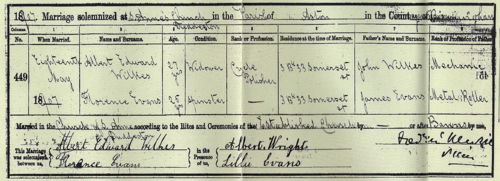 1907. Marriage solemnized at S. Anne's Church in the Parish of Aston in the County of
Duddeston
Columns:— 1 2 3 4 5 6 7 8
No. When Married. Name and Surname. Age Condition Rank or Profession. Residence at the time of Marriage. Father's Name and Surname. Rank or Profession of Father
449 Eighteenth May 1907 Albert Edward Wilkes 27 yrs Widower Cycle Polisher Somerset St John Wilkes Mechanic
Florence Evans 25 yrs Spinster — Somerset St James Evans Metal Roller
Married in the Church of S. Anne according to the Rites and Ceremonies of the Established Church by — or after Banns by me,
Duddeston
This Marriage was solemnized between us, Albert Edward Wilkes
Florence Evans
in the Presence of us, Albert Wright
Lillie Evans